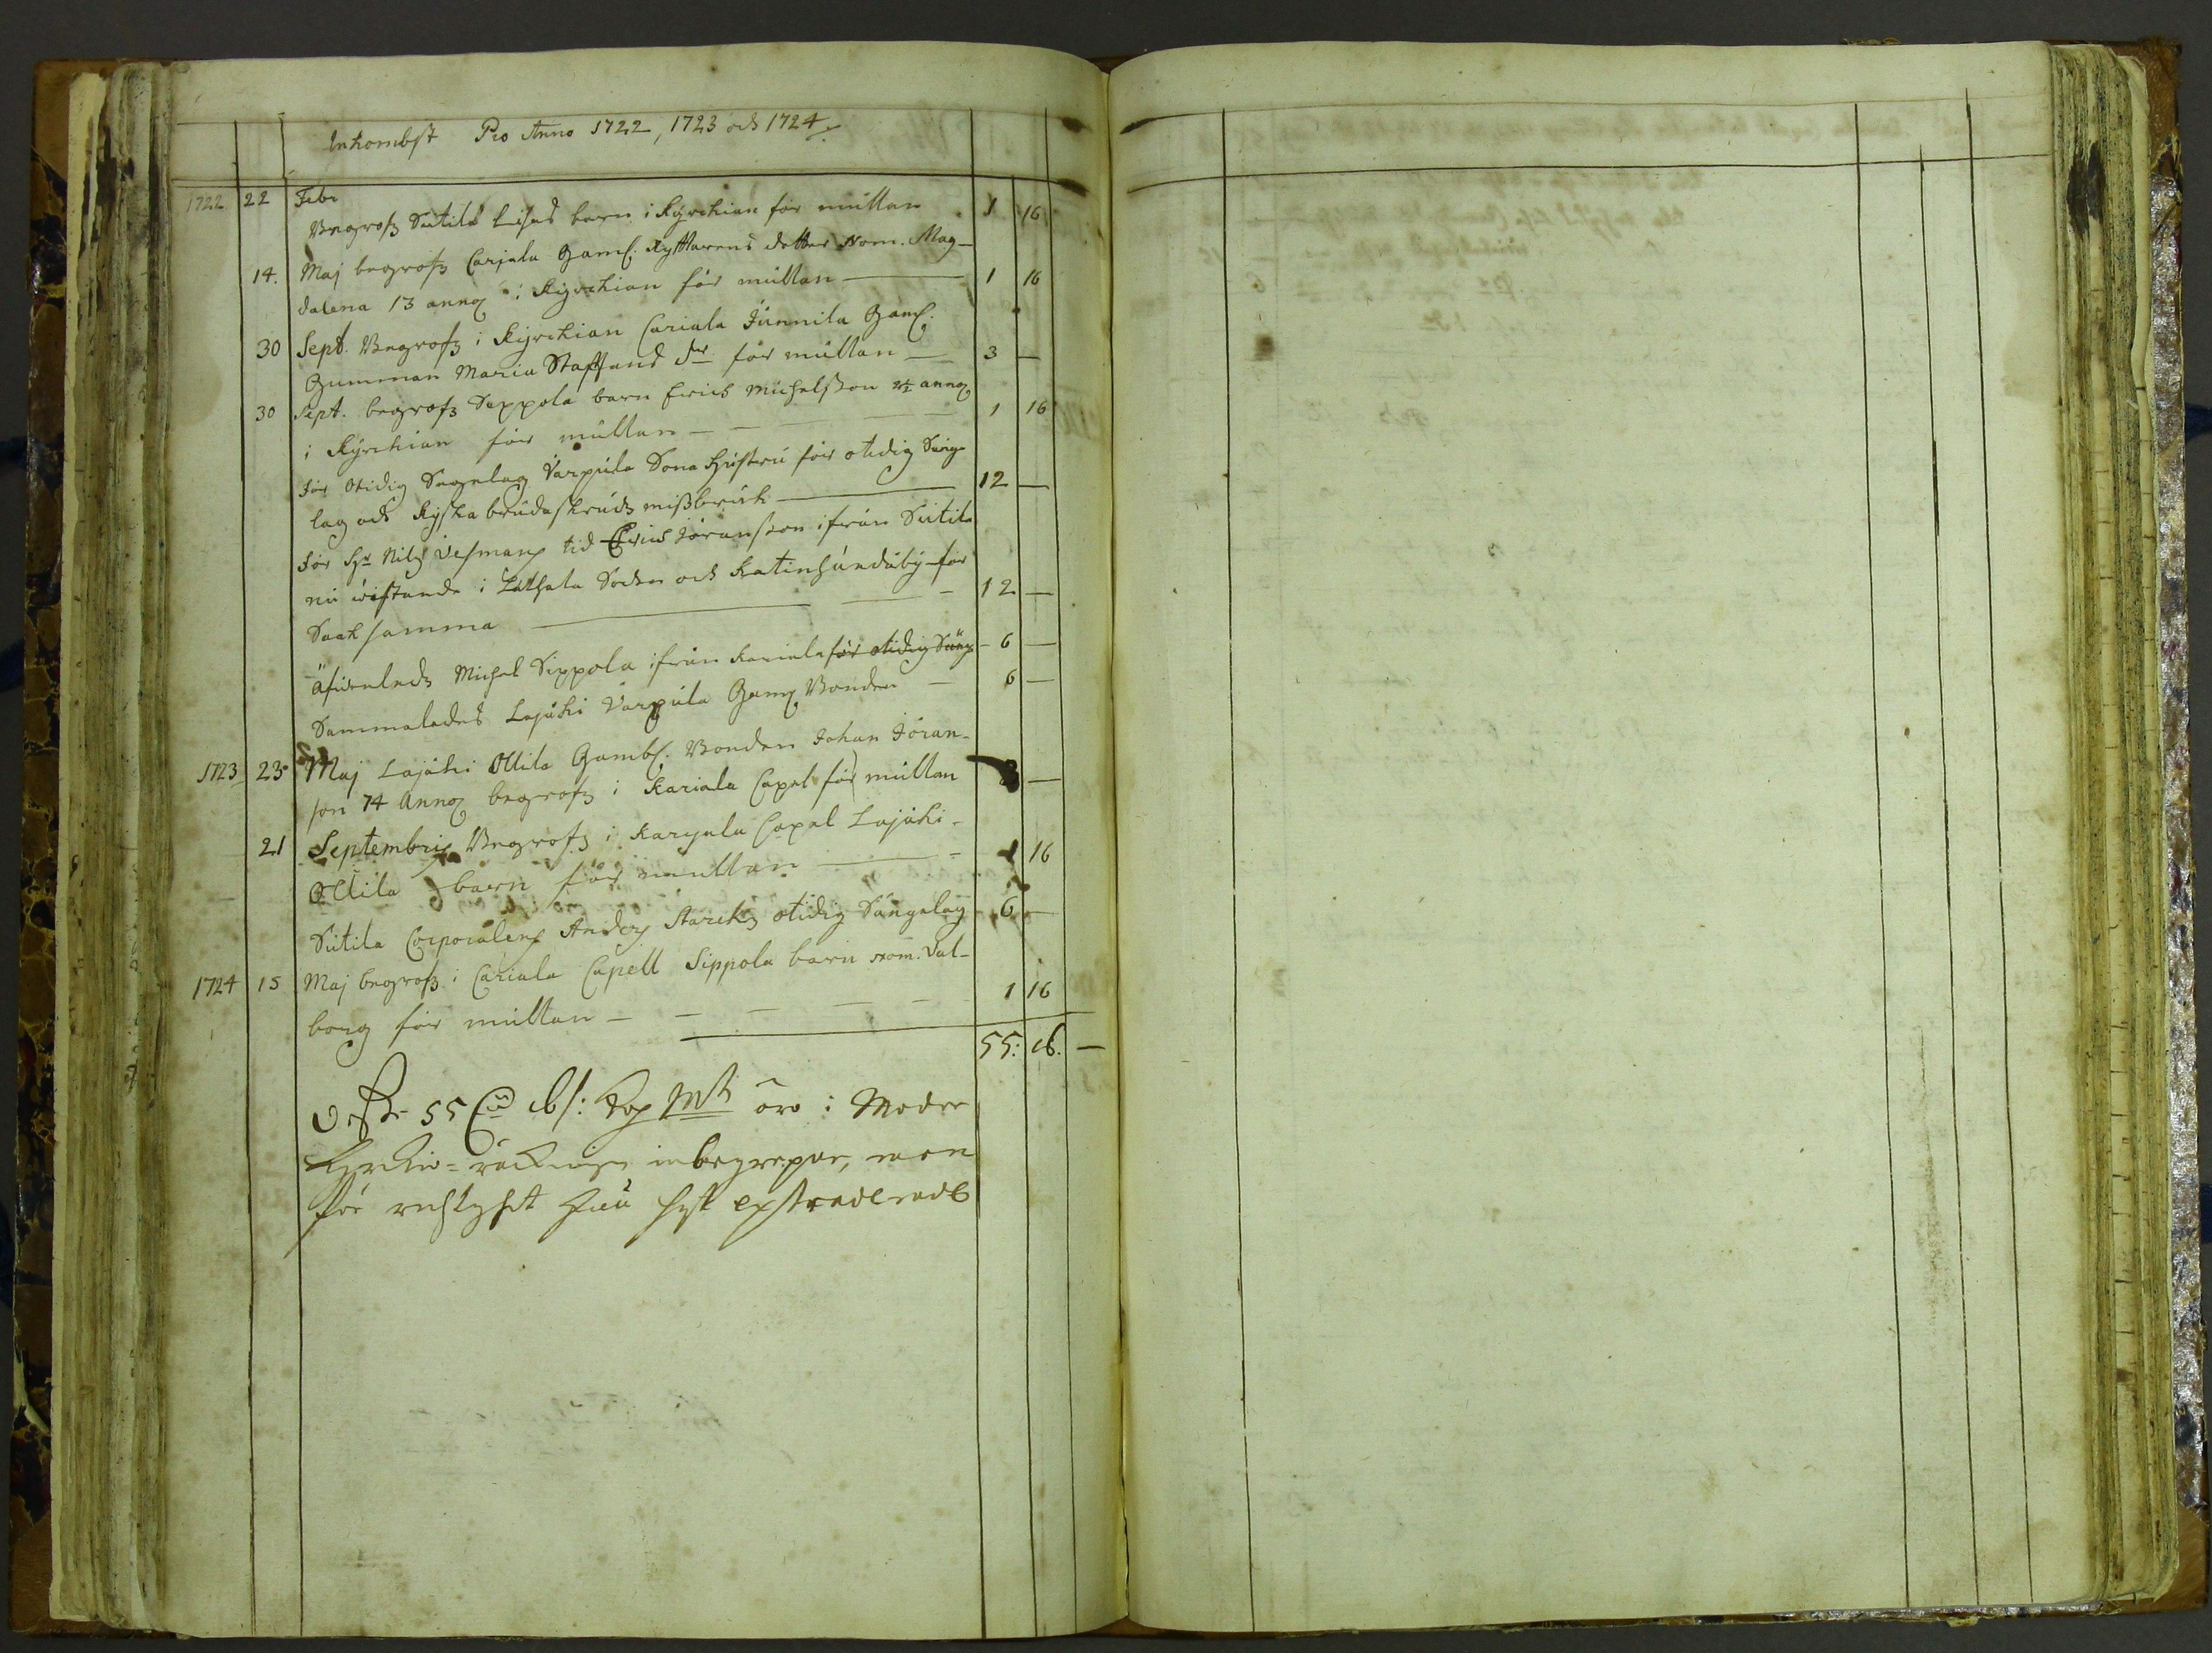 Inkombst Pro Anno 1722, 1723 och 1724
1722 22 Febr
Begrofs Sutila barn i Kyrckian för mullan 1 16
14. Maj begrofs Carjala Gaml. Ryttarens dotter Nom. Mag-
dalena 13 annor i Kyrckian för mullan 1 16
30 Sept. Begrofs i Kyrckian Cariala Junnila Gaml.
Gumman Maria Staffans dr för mullan 3 —
30 Sept. begrofs Seppola barn Erich Michelsson annor
i Kyrckian för mullan 1 16
För Otidig Sengelag Varpula Sona Hustru för otidig Senge
lag och Kyrka brudaskruds missbruk 12 —
För Hr Nils tid Erich Jöransson ifrån Sutila
nu wistande i Säkn och för
Saak samma 12 —
Äfwenleds Michel Sippola ifrån Kariala för otidig Säng 6 —
Sammaledes Lajuki Varpula Gaml. Bonden 6 —
1723 23 Maj Lajuki Ollila Gambl. Bonden Johan Jöran-
son 74 Annor begrofs i Kariala Capel för mullan 3 —
21 Septembris Begrofs i Karjala Capel Lajuki
Ollila barn för mullan 1 16
Sutila Corporalens Anders Starcks otidig Sängelag 6 —
1724 15 Maj begrofs i Cariala Capell Sippola barn nom. Val-
borg för mullan 1 16
55: 16. —
55 16 äro i Moder
Kyrckio-räckningen inbegrepne, men
för